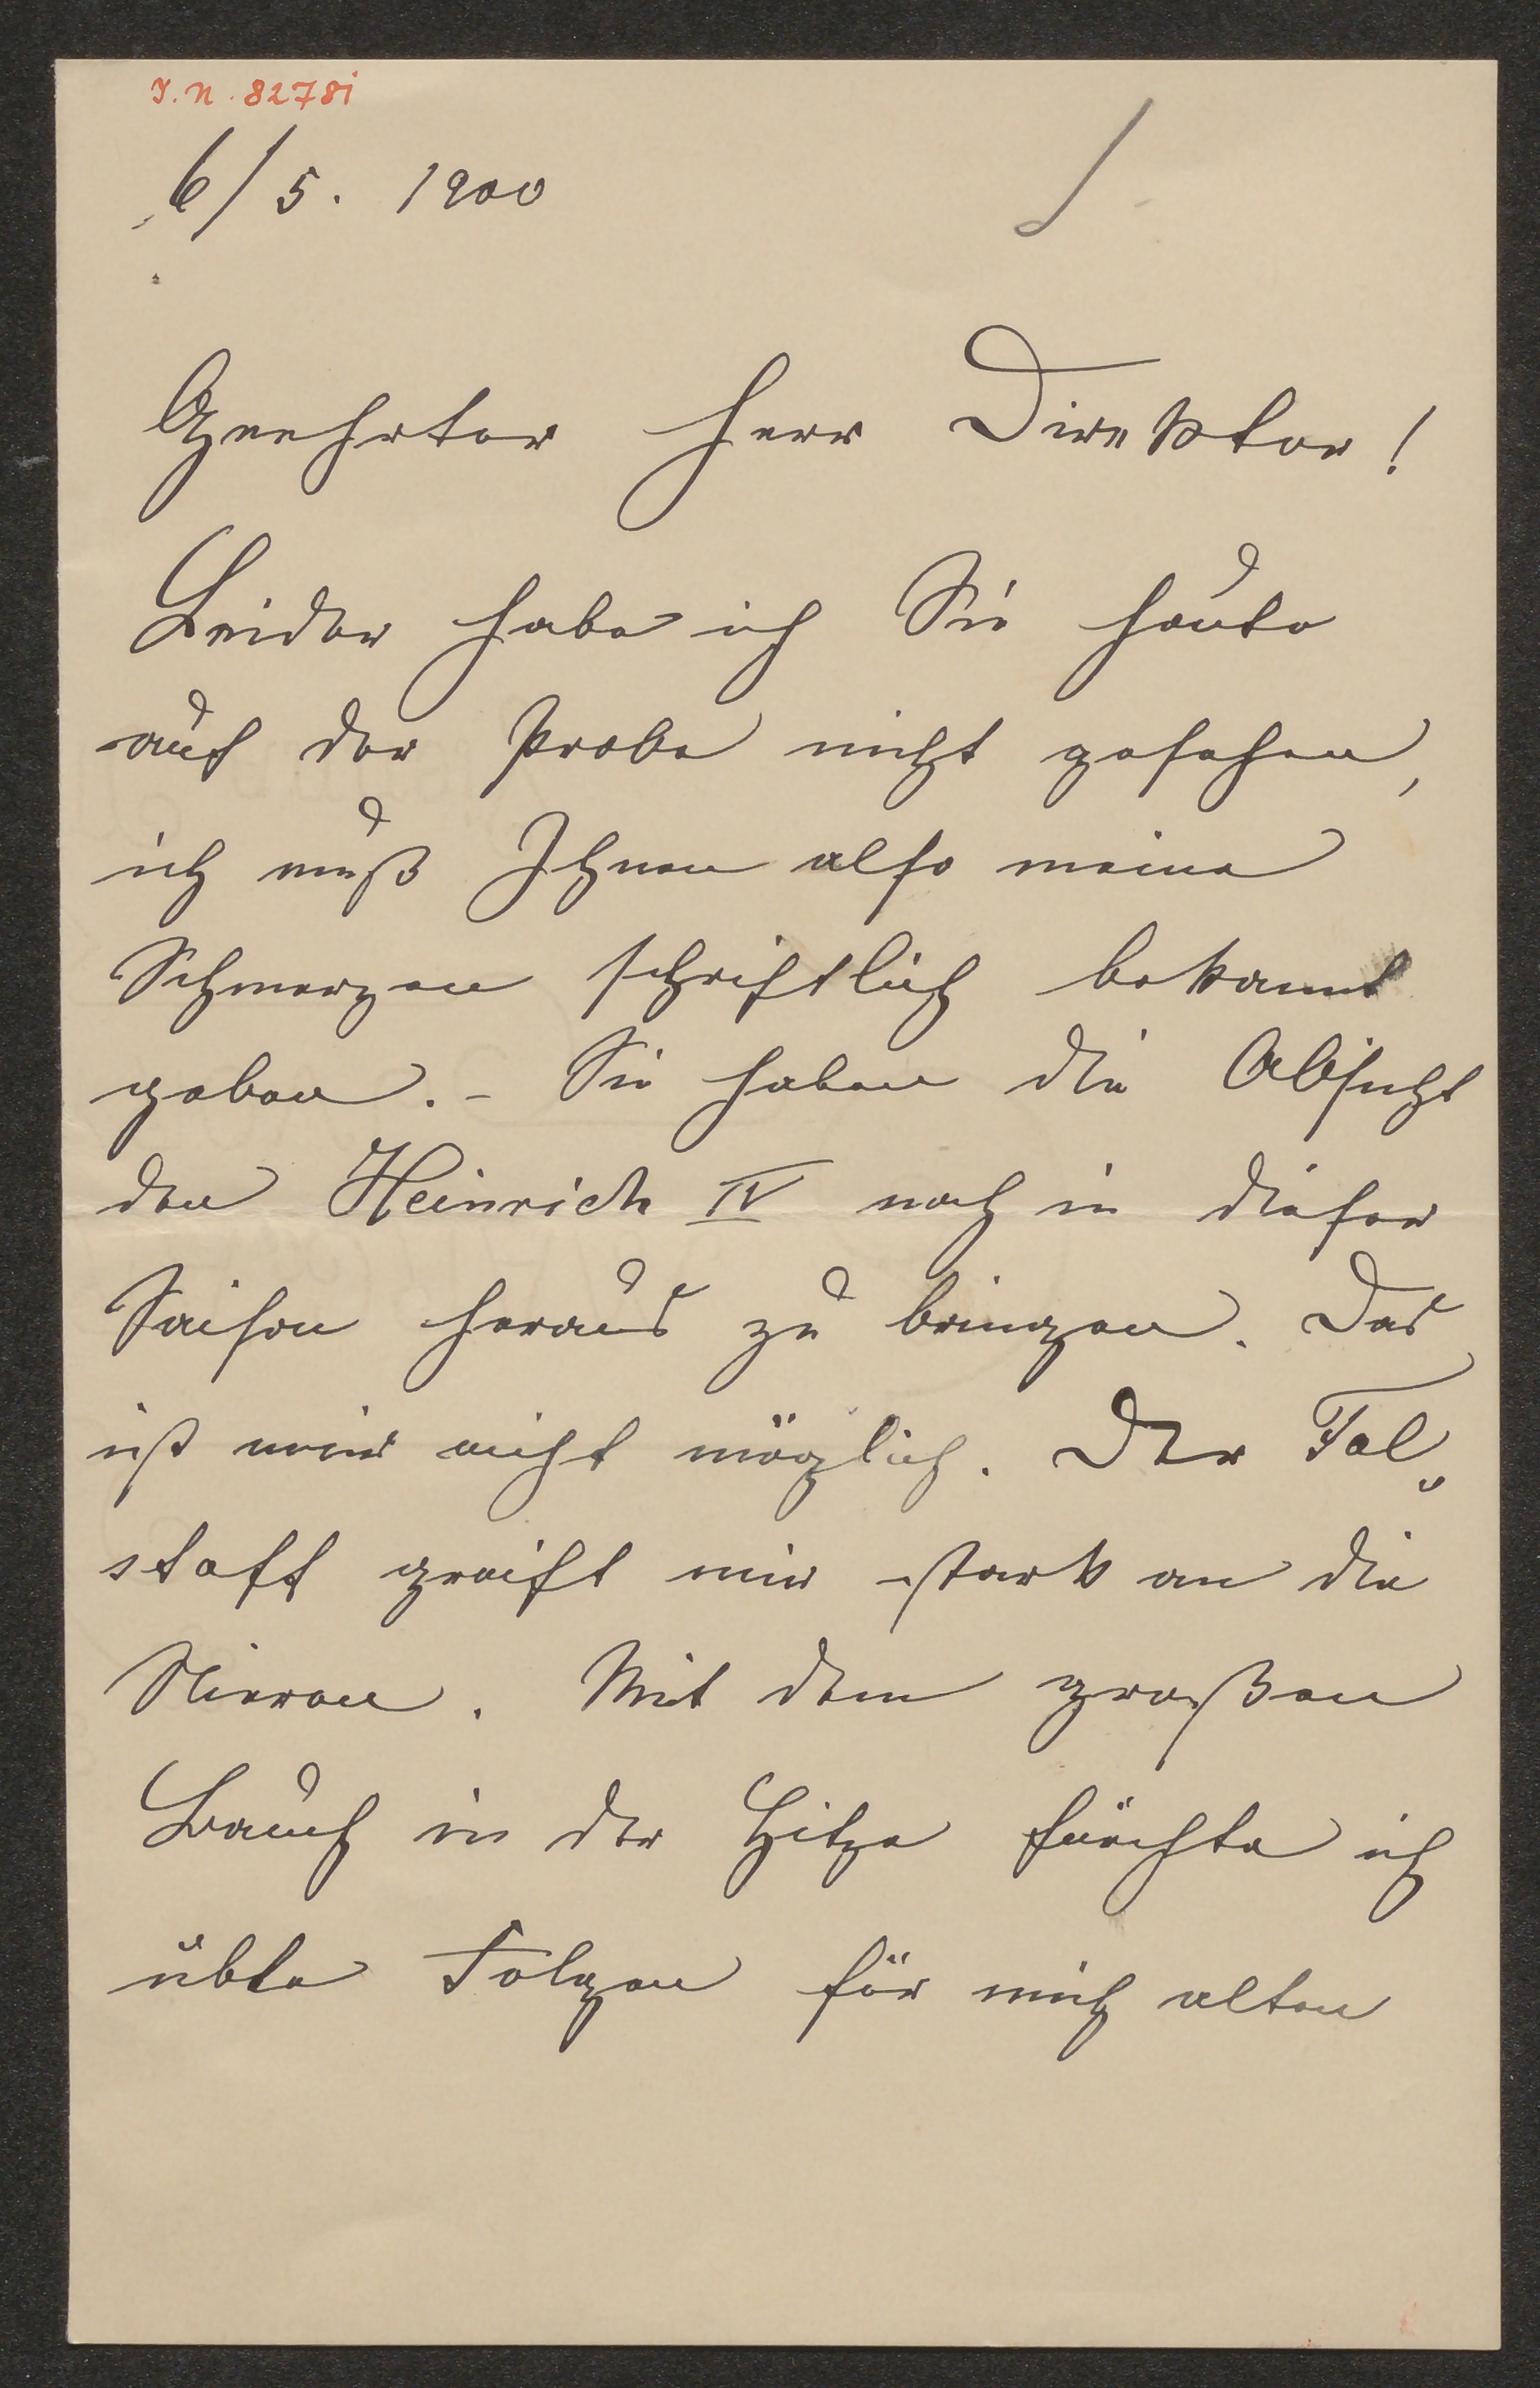 I.N. 82781
6/5. 1900
Geehrter Herr Direktor!
Leider habe ich Sie heute
auf der Probe nicht gesehen,
ich muß Ihnen also meine
Schmerzen schriftlich bekannt
geben. – Sie haben die Absicht
den Heinrich IV noch in dieser
Saison heraus zu bringen. Das
ist mir nicht möglich. Der Fal„
staff greift mir stark an die
Nieren. Mit dem großen
Bauch in der Hitze fürchte ich
üble Folgen für mich alten